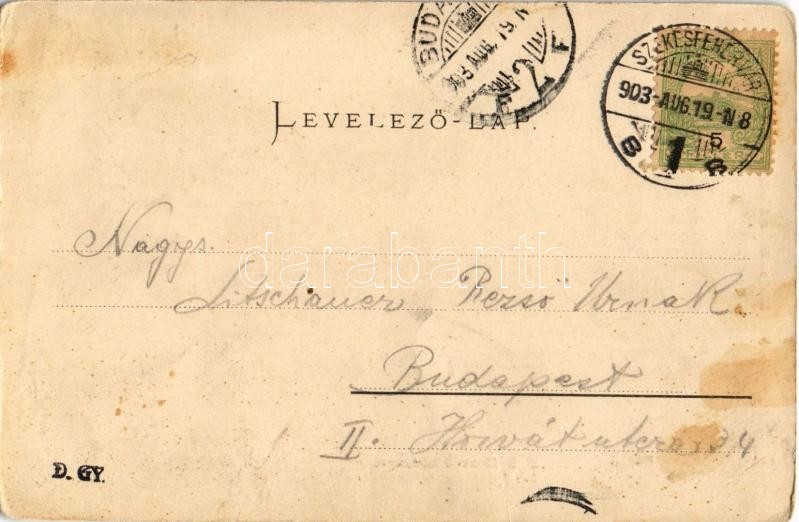 BUDA
903 AUG. 19. N
F
SZÉKESFEHÉRVÁR
903-AUG.19.-N 8
5
B 1 B
LEVELEZŐ-LAP.
Nagys.
Litschauer Rezső Urnak
Budapest
II. Horvát utcza 34
D. GY.
darabanth